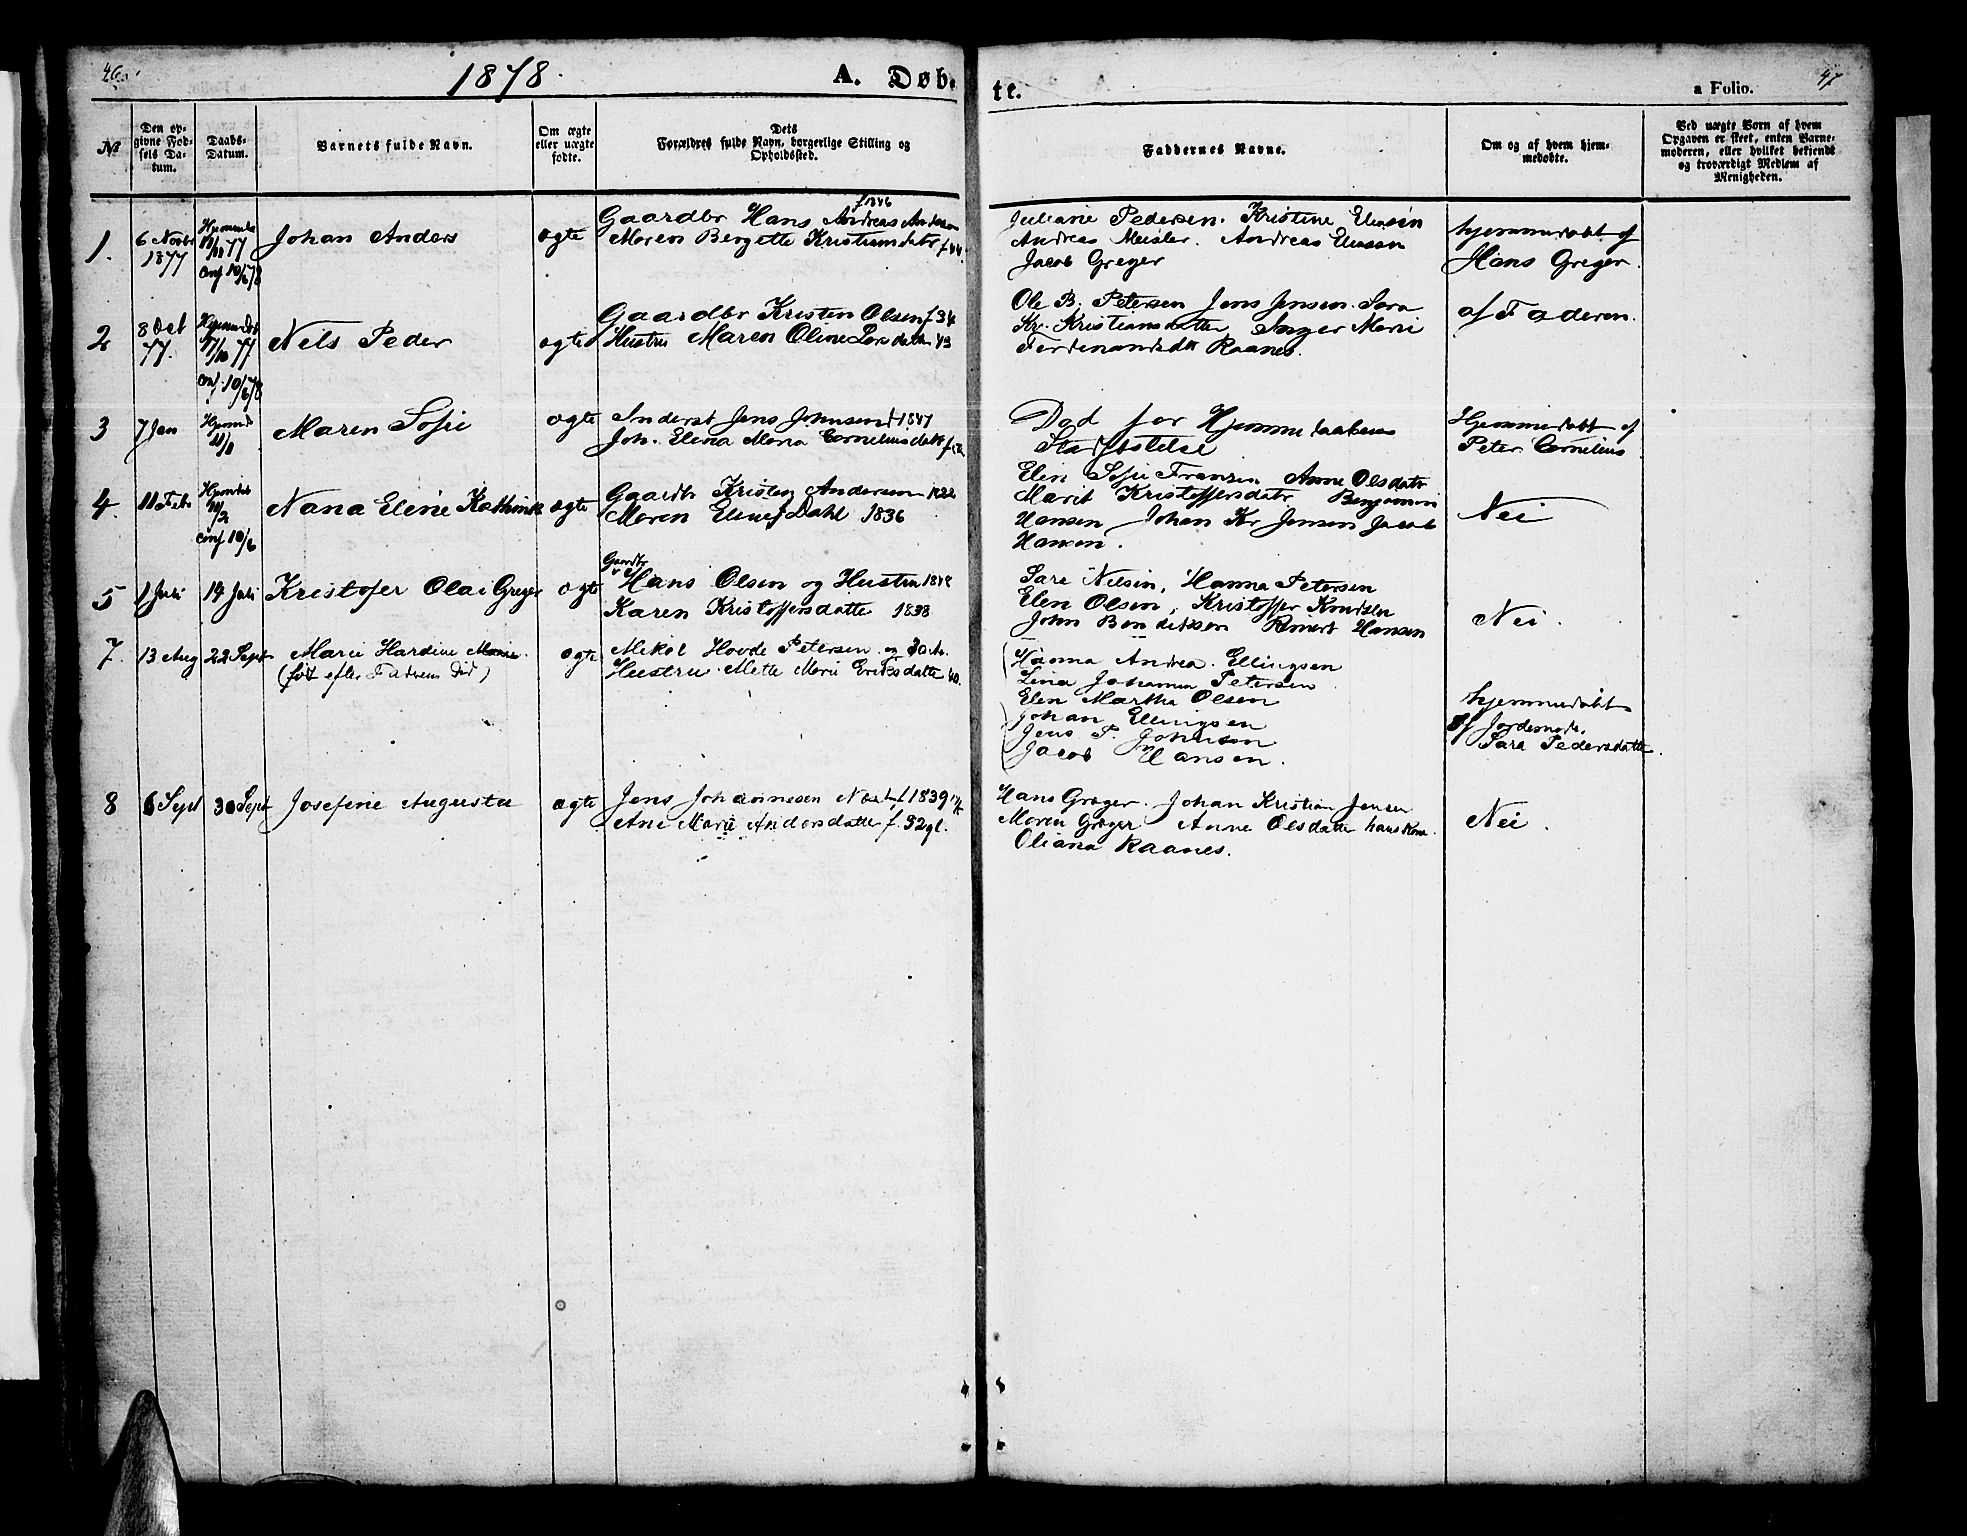 46. 1878. A. Døb-
te. a Folio. 47
№
Den op-
givne Fød-
sels Da-
tum.
Daabs-
Datum.
Barnets fulde Navn.
Om ægte
eller uægte
fødte.
Dets
Forældres fulde Navn, borgerlige Stilling og
Opholdssted.
Faddernes Navne.
Om og af hvem hjem-
medøbte.
Ved uægte Børn af hvem
Opgaven er skeet, enten Barne-
moderen, eller hvilket bekjendt
og troværdigt Medlem af
Menigheden.
1.
6 Novbr
1877
77
conf 10/6 78
Johan Anders
ægte
f 1846
Gaardbr Hans Andreas Andersen
Maren Bergette Kristiansdatr f 44.
Juliane Pedersen. Kristine Eliassen
Andreas Meisler. Andreas Eliassen
Jacob Greger
hjemmedøbt af
Hans Greger.
2
8 Oct
77.
77
conf. 10/6 78
Nels Peder
ægte
Gaardbr Kristen Olsen f 34
Hustru Maren Oline Larsdatter 43
Ole B. Petersen Jens Jensen. Sara
Kr. Kristiansdatter Inger Marie
Ferdinandsdtr Raanes.
af Faderen.
3
7 Jan
Maren Sofie
ægte
Inderst Jens Johnsen f 1847
Joh. Elena Maria Cornelius datt
Død før Hjemmedaabens
Stadfæstelse
Hjemmedøbt af
Peter Cornelius
4.
11 Feb
conf 10/6
Nana Eline Kathinka
ægte
Gaardbr Kristen Andersen 1822
Maren Eline Dahl 1836
Elen Sofie Fransen Anne Olsdatr
Marit Kristoffersdatr Benjamin
Hansen Johan Kr Jensen Jacob
Hansen.
Nei
5
1 Juli
14 Juli
Kristofer Olai Greger
ægte
Gaardbr
Hans Olsen og Hustru
Karen Kristoffersdatte 1838
Sara Nilsen, Hanna Petersen
Elen Olsen, Kristoffer Knudsen
John Bendiksen Reinert Hansen
Nei.
7.
13 Aug
22 Sept
Marie Hardine
(født efter Faderens Død)
ægte
Mikal Hovde Petersen og
Hustru. Mette Marie Eriksdatte 40.
Hanna Andrea. Ellingsen
Lina Johanna Petersen
Elen Martha Olsen
Johan Ellingsen
Jens P. Johnsen
Jacob Hansen.
hjemmedøbt
af Jordemode.
Sara Pedersdatte.
8
6 Sept
30 Sept
Josefine Augusta
ægte
Jens Johannesen f 1839
Ane Marie Andersdatte f. 32 gl.
Hans Greger. Johan Kristian Jensen
Maren Greger Anne Olsdatte hans Kone.
Oliana Raanes.
Nei.